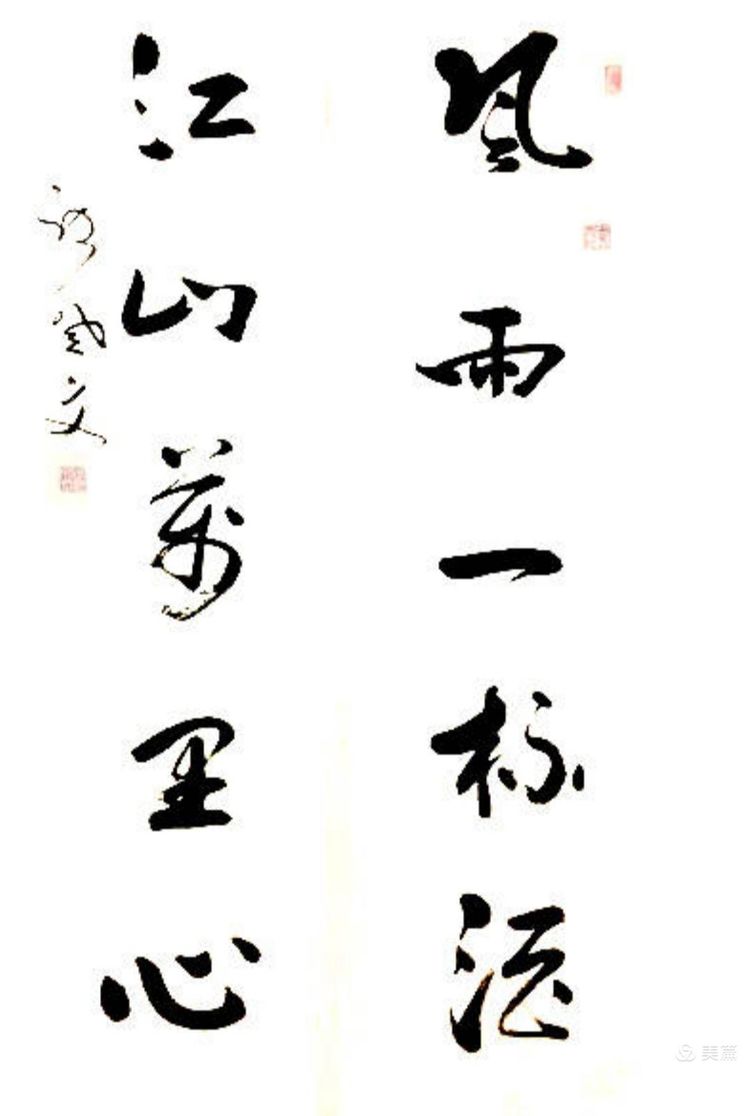 風雨一杯酒
江山萬里心
美篇